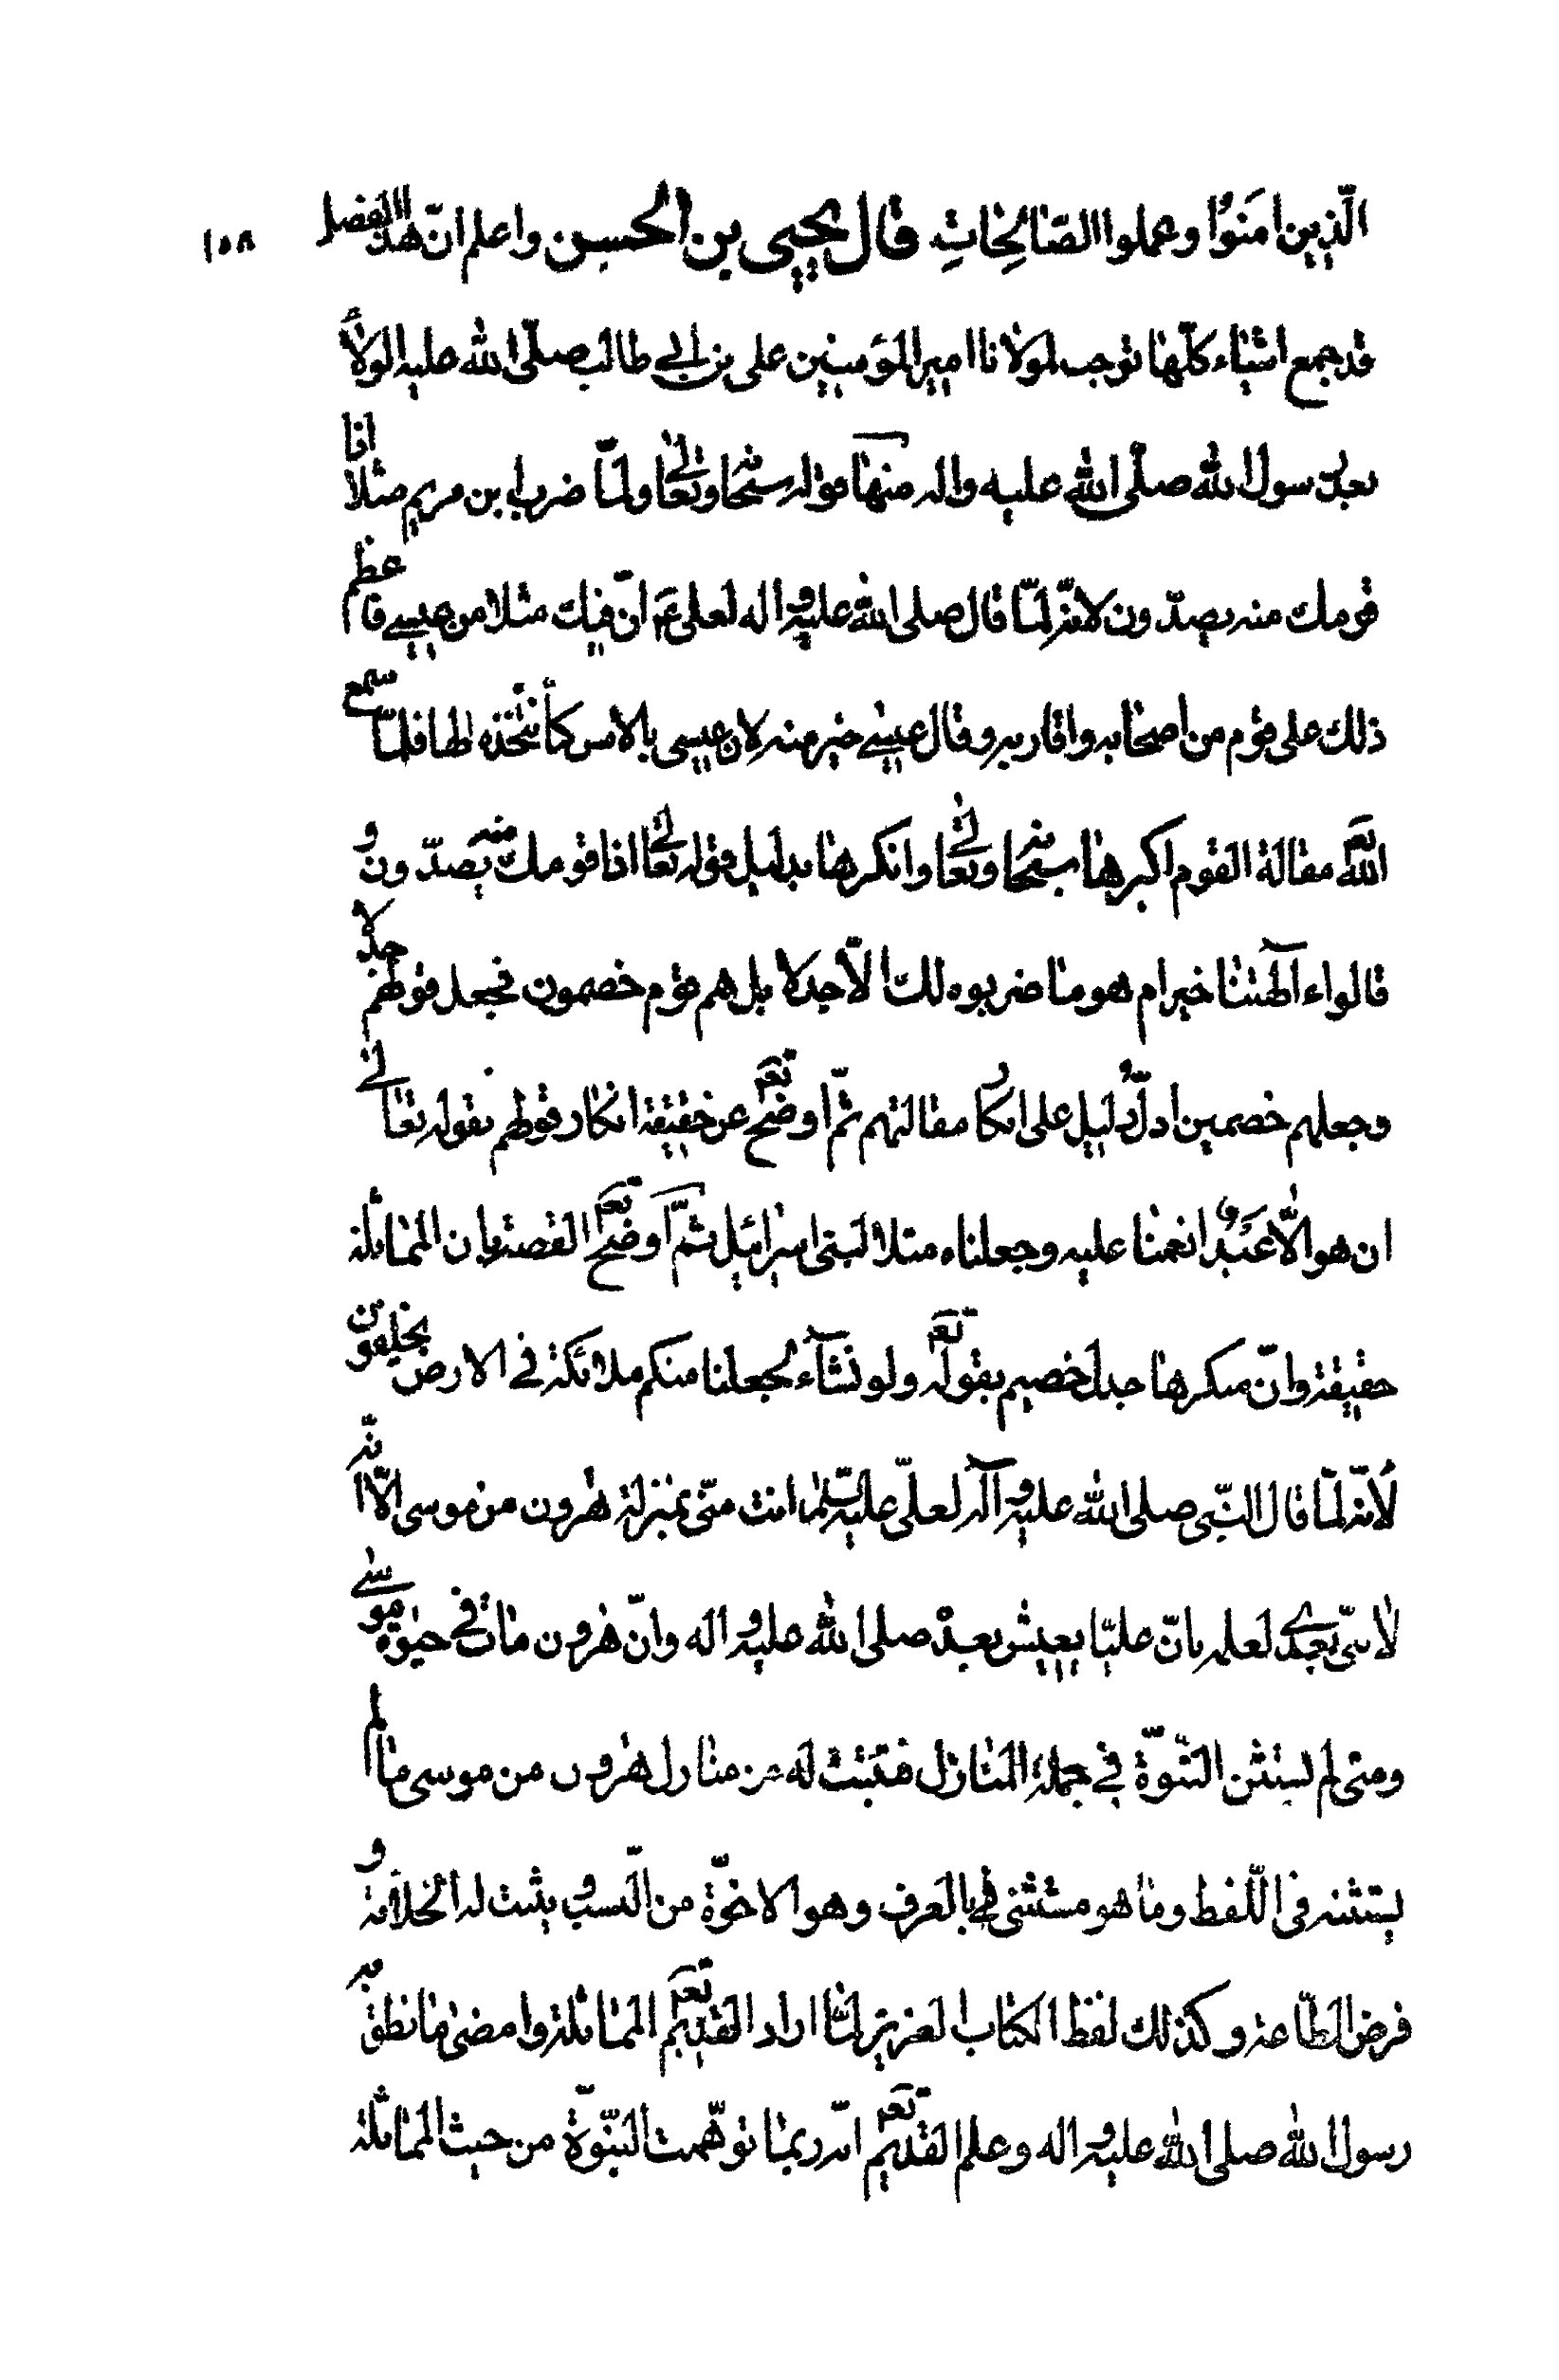 الّذين امَنوُا وعملوا الصّالِحٰاتِ قال يحيى بن الحسن واعلم انّ هذا الفصل ١٥٨
قد جمع اشياء كلّها توجب لمولانا امير المؤمنين على بن ابي طالب صلّى الله عليه الولاء
بعد رسول الله صلّى الله عليه واله منها قوله سبحٰا وتعٰالى ولمّا ضرب ابن مريم مثلا اذا
قومك منه يصدّون لانّه لمّا قال صلى الله عليه واله لعلى عم انّ فيك مثلا من عيسى فاعظم
ذلك على قوم من اصحابه واقاربه وقال عيسى خير منه لان عيسى بالامس كا نتّخذه الها فلمّا سمع
الله مقالة القوم اكبرها سبحٰا وتعٰالى وانكرها بدليل قوله تعٰالى اذا قومك منه يصدّون و
قالوا ءآلهتنا خير ام هو ما ضربوه لك الّا جدلا بل هم قوم خصمون فجعل قولهم جدلا
وجعلهم خصمين ادلّ دليل على انكار مقالتهم ثمّ اوضح تعٰ عن حقيقة انكار قولهم بقوله تعالى
ان هو الّا عَبْدٌ انعمنا عليه وجعلناه مثلا لبنى اسرائيل ثمّ اوضح تعٰ القصة بان المماثلة
حقيقة وانّ منكرها جدل خصم بقوله تعٰ ولو نشآء لجعلنا منكم ملائكة في الارض يخلفون
لأنّه لمّا قال النّبى صلى الله عليه وآله لعلّى عليه السّلم انت منّى بمنزلة هٰرون من موسى الّا انّه
لا نبّى بعدي لعلمه بانّ عليّا يعيش بعده صلى الله عليه واله وانّ هٰرون مات في حيٰوة موسى
ومتى لم يستثن النّبّوة في جملة المنازل فتثبت له من منازل هٰرون من موسى ما لم
يستثنه فى اللّفظ وما هو مستثنى في بالعرف وهو الاخوّة من النّسب ويثبت له الخلافة و
فرض الطّاعة وكذلك لفظ الكتاب العزيز لمّا اراد القديم تعٰ المماثلة وامضى ما نطق به
رسول الله صلى الله عليه واله وعلم القديم تعٰ انّه ربما توهّمت النّبّوة من حيث المماثلة